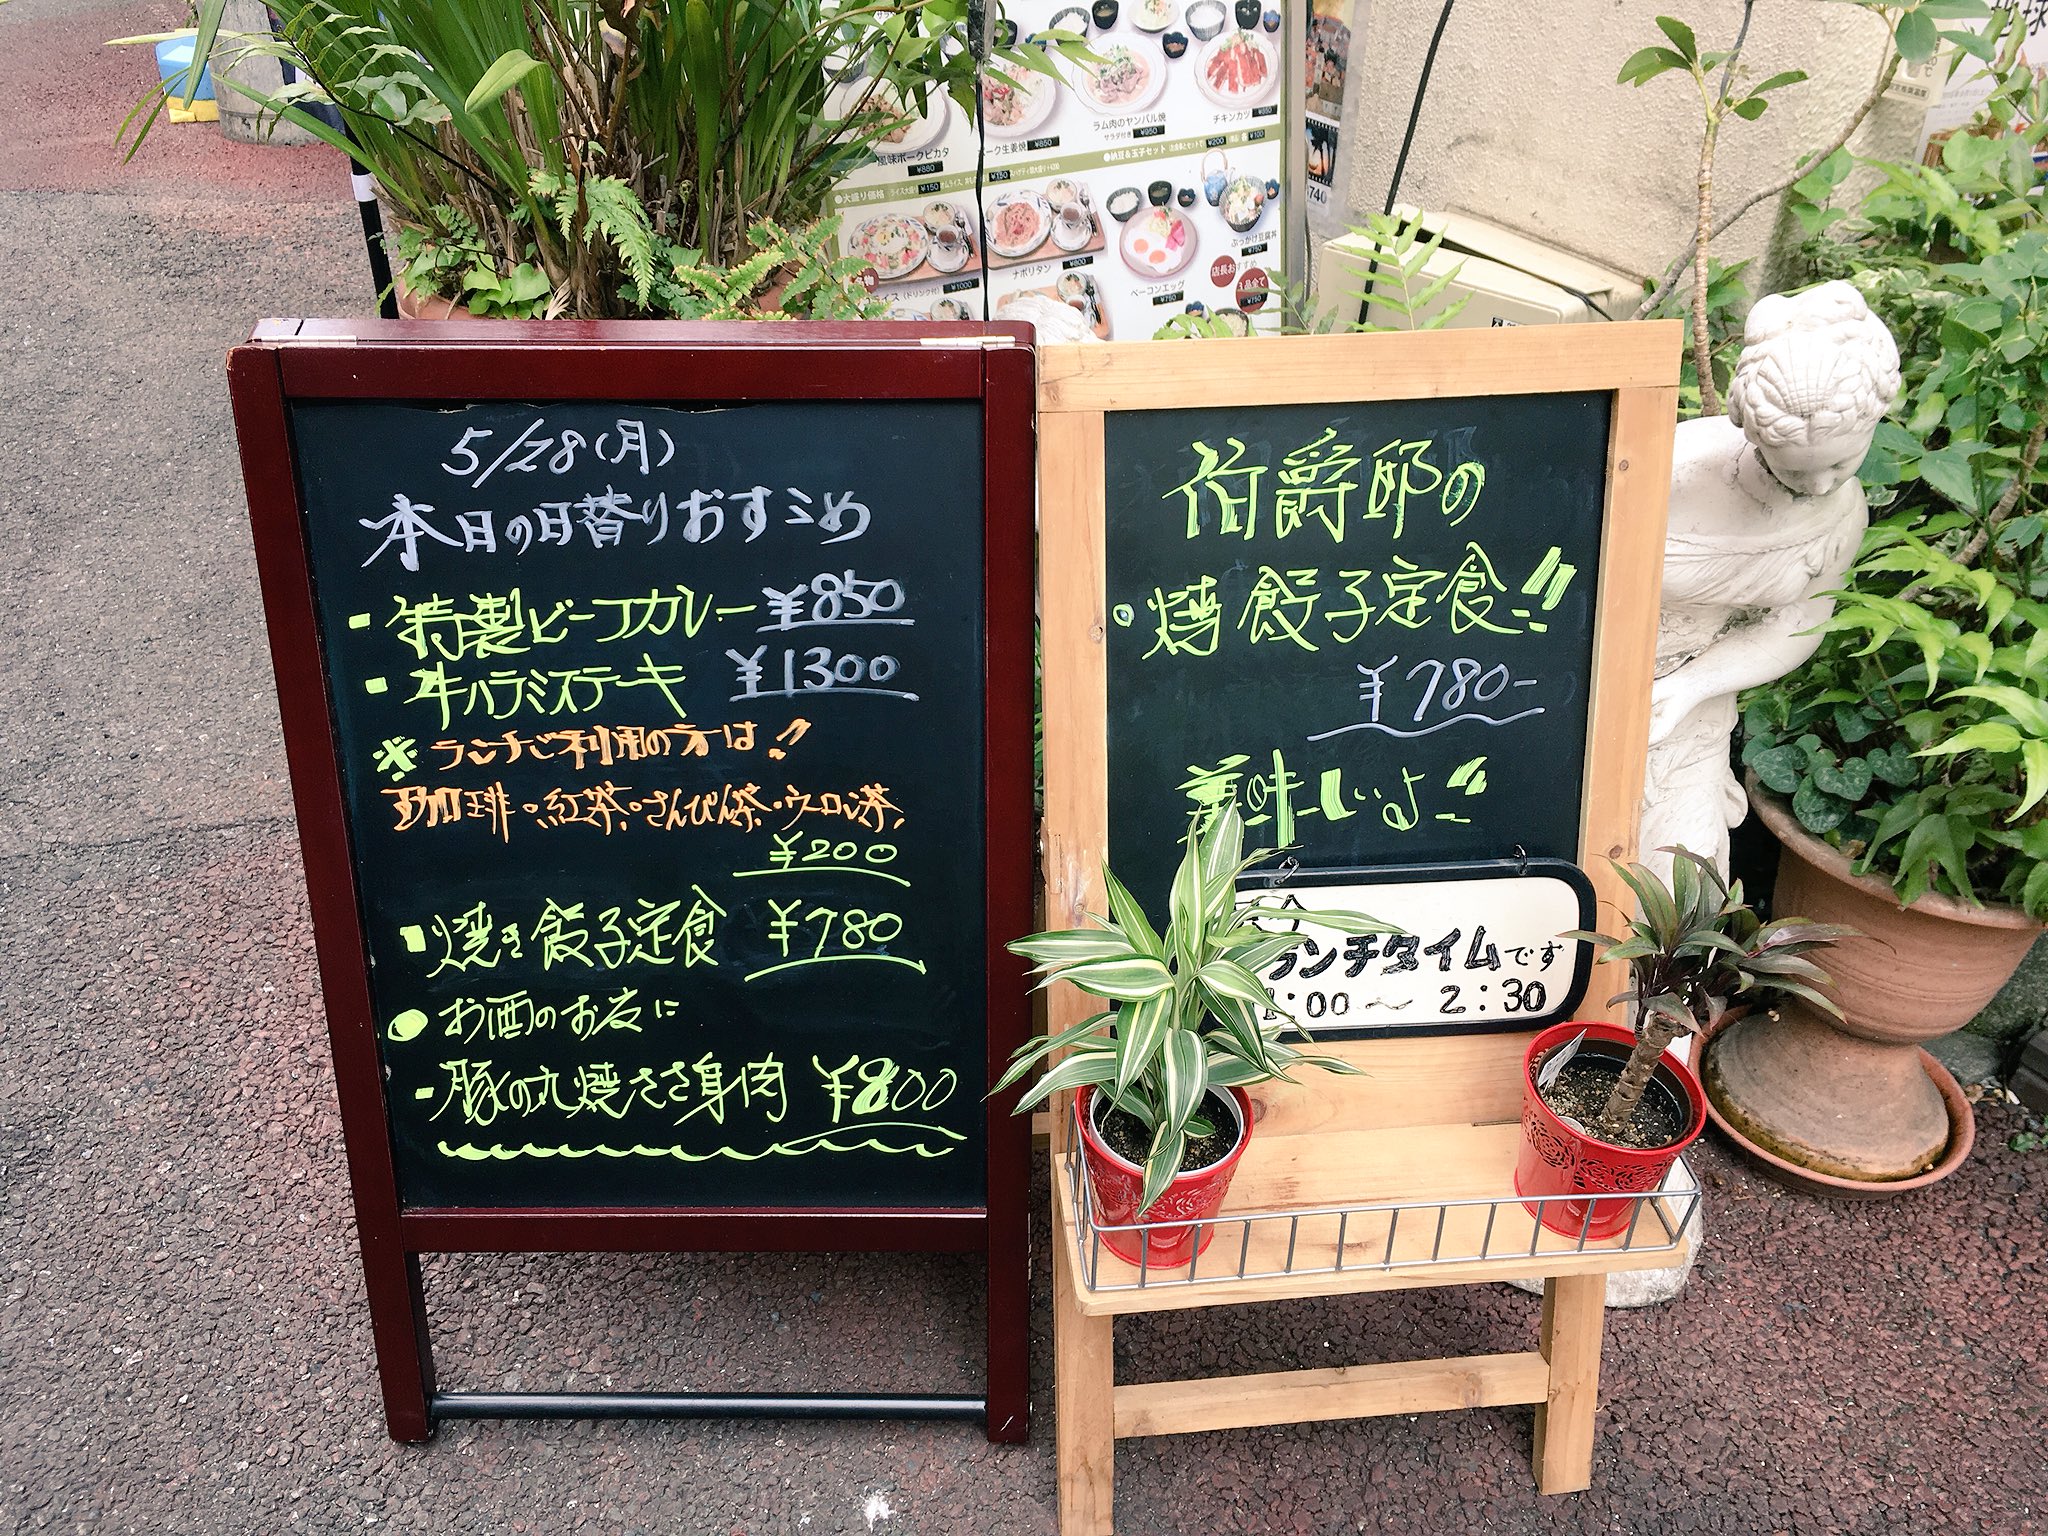 5/28(月)
本日の日替りおすゝめ
- 特製ビーフカレー ¥850
- 牛ハラミステーキ ¥1300
※ランチご利用の方は!!
珈琲・紅茶・さんぴん茶・ウーロン茶
¥200
焼き餃子定食 ¥780
● お酒のお友に
- 豚の丸焼ささ身肉 ¥800
伯爵邸の
・焼餃子定食!!
¥780-
美味しいよ!!
ランチタイムです
:00〜2:30
風味ポークピカタ
¥880
ポーク生姜焼 ¥850
ラム肉のヤンバル焼
サラダ付き ¥950
チキンカツ ¥850
●納豆&玉子セット
¥200
¥100
●大盛り価格
¥150
¥150
ライス(ドリンク付) ¥1000
ナポリタン ¥800
ベーコンエッグ
¥750
ぶっかけ豆腐丼
¥750
店長おすすめ
¥750
740
地球